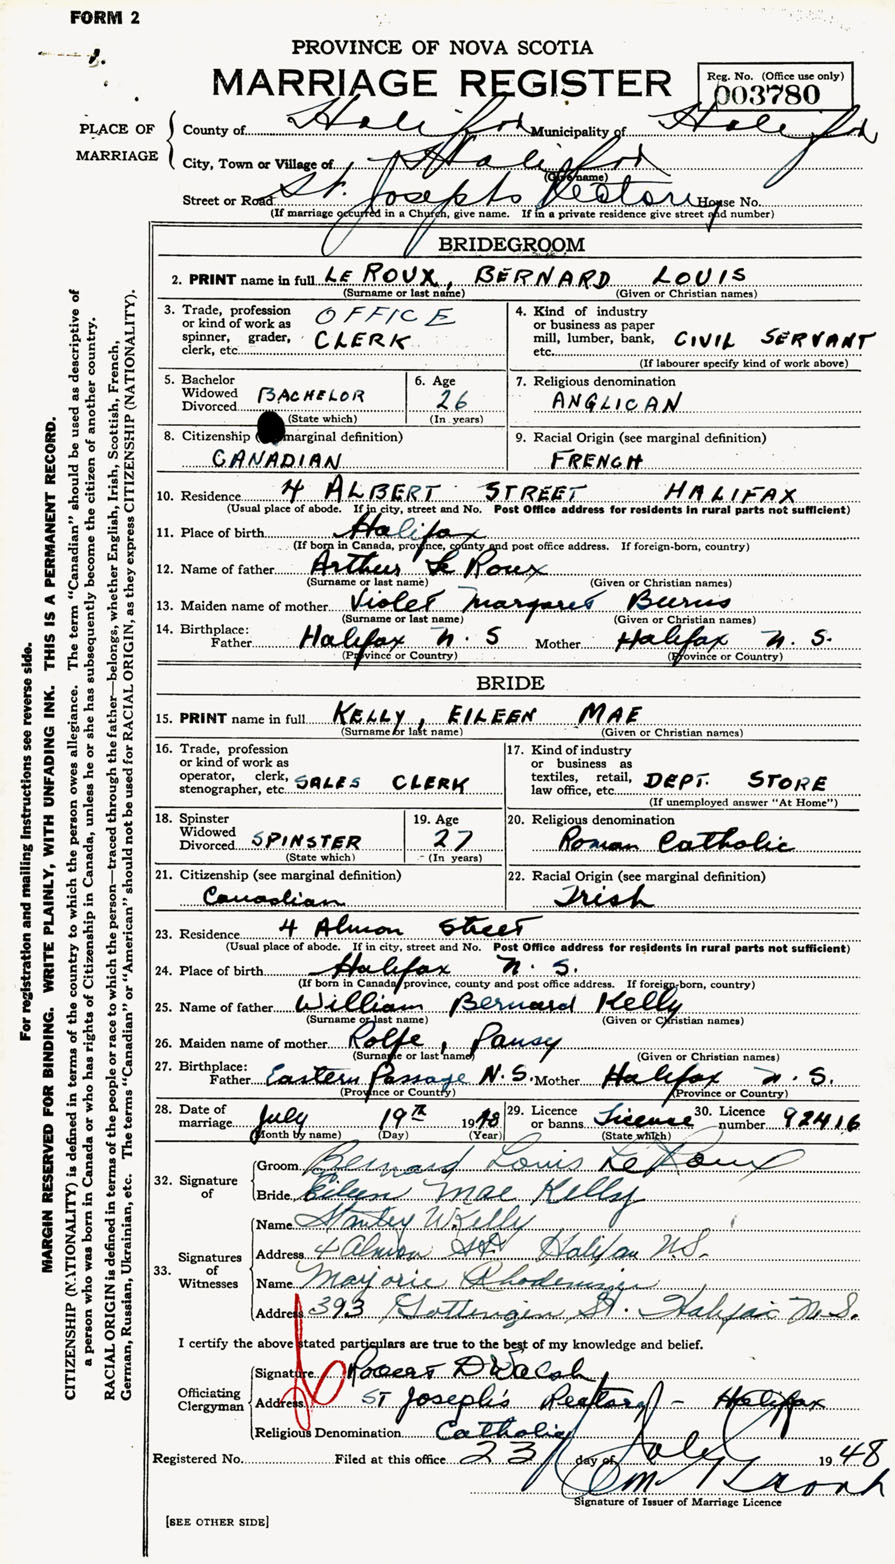 FORM 2
PROVINCE OF NOVA SCOTIA
MARRIAGE REGISTER
Reg. No. (Office use only)
003780
PLACE OF MARRIAGE
County of Halifax Municipality of Halifax
City, Town or Village of Halifax
(Give name)
Street or Road St. Josephs Rectory House No.
(If marriage occurred in a Church, give name. If in a private residence give street and number)
BRIDEGROOM
2. PRINT name in full LE ROUX, BERNARD LOUIS
(Surname or last name) (Given or Christian names)
3. Trade, profession or kind of work as spinner, grader, clerk, etc. OFFICE CLERK
4. Kind of industry or business as paper mill, lumber, bank, etc. CIVIL SERVANT
(If labourer specify kind of work above)
5. Bachelor Widowed Divorced BACHELOR
(State which)
6. Age 26
(In years)
7. Religious denomination
ANGLICAN
8. Citizenship marginal definition)
CANADIAN
9. Racial Origin (see marginal definition)
FRENCH
10. Residence 4 ALBERT STREET HALIFAX
(Usual place of abode. If in city, street and No. Post Office address for residents in rural parts not sufficient)
11. Place of birth Halifax
(If born in Canada, province, county and post office address. If foreign-born, country)
12. Name of father Arthur Le Roux
(Surname or last name) (Given or Christian names)
13. Maiden name of mother Violet Margaret Burns
(Surname or last name) (Given or Christian names)
14. Birthplace: Father Halifax N. S Mother Halifax N. S.
(Province or Country) (Province or Country)
BRIDE
15. PRINT name in full KELLY, EILEEN MAE
(Surname or last name) (Given or Christian names)
16. Trade, profession or kind of work as operator, clerk, stenographer, etc. SALES CLERK
17. Kind of industry or business as textiles, retail, law office, etc. DEPT. STORE
(If unemployed answer "At Home")
18. Spinster Widowed Divorced SPINSTER
(State which)
19. Age 27
(In years)
20. Religious denomination
Roman Catholic
21. Citizenship (see marginal definition)
Canadian
22. Racial Origin (see marginal definition)
Irish
23. Residence 4 Almon Street
(Usual place of abode. If in city, street and No. Post Office address for residents in rural parts not sufficient)
24. Place of birth Halifax N. S.
(If born in Canada, province, county and post office address. If foreign-born, country)
25. Name of father William Bernard Kelly
(Surname or last name) (Given or Christian names)
26. Maiden name of mother Rolfe, Pansy
(Surname or last name) (Given or Christian names)
27. Birthplace: Father Eastern Passage N.S. Mother Halifax N. S.
(Province or Country) (Province or Country)
28. Date of marriage July 19th 1948
(Month by name) (Day) (Year)
29. Licence or banns License
(State which)
30. Licence number 92416
32. Signature of
Groom Bernard Louis Le Roux
Bride Eileen Mae Kelly
33. Signatures of Witnesses
Name Stanley W. Kelly
Address 4 Almon St. Halifax N.S.
Name Marjorie
Address 393 Gottingen St. Halifax N.S.
I certify the above stated particulars are true to the best of my knowledge and belief.
Officiating Clergyman
Signature Robert D Walsh
Address St Joseph's Rectory - Halifax
Religious Denomination Catholic
Registered No. Filed at this office 23 day of July 1948
Signature of Issuer of Marriage Licence
[SEE OTHER SIDE]
For registration and mailing instructions see reverse side.
MARGIN RESERVED FOR BINDING. WRITE PLAINLY, WITH UNFADING INK. THIS IS A PERMANENT RECORD.
CITIZENSHIP (NATIONALITY) is defined in terms of the country to which the person owes allegiance. The term "Canadian" should be used as descriptive of
a person who was born in Canada or who has rights of Citizenship in Canada, unless he or she has subsequently become the citizen of another country.
RACIAL ORIGIN is defined in terms of the people or race to which the person—traced through the father—belongs, whether English, Irish, Scottish, French,
German, Russian, Ukrainian, etc. The terms "Canadian" or "American" should not be used for RACIAL ORIGIN, as they express CITIZENSHIP (NATIONALITY).